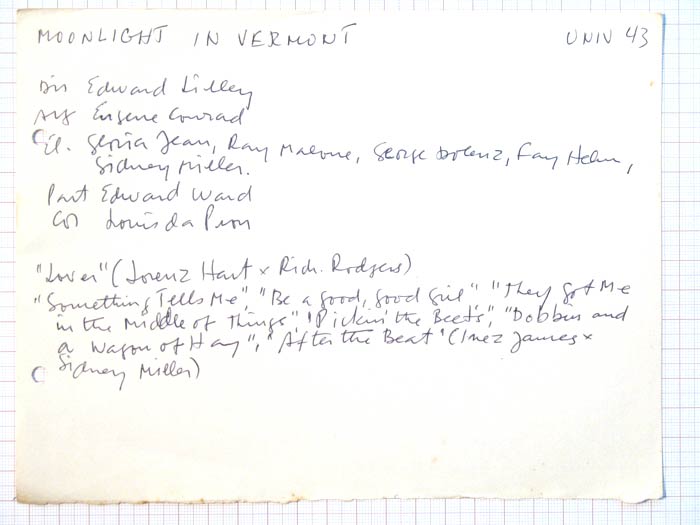 MOONLIGHT IN VERMONT UNIV 43
Dir Edward Lilley
Arg Eugene Conrad
El. Gloria Jean, Ray Malone, George Dolenz, Fay Helm,
Sidney Miller.
Part Edward Ward
Cor Louis da Pron
"Lover" (Lorenz Hart x Rich. Rodgers)
"Something Tells Me", "Be a good, good girl" "They Got Me
in the Middle of Things", "Pickin' the Beets", "Dobbin and
a Wagon of Hay", "After the Beat" (Inez James x
Sidney Miller)